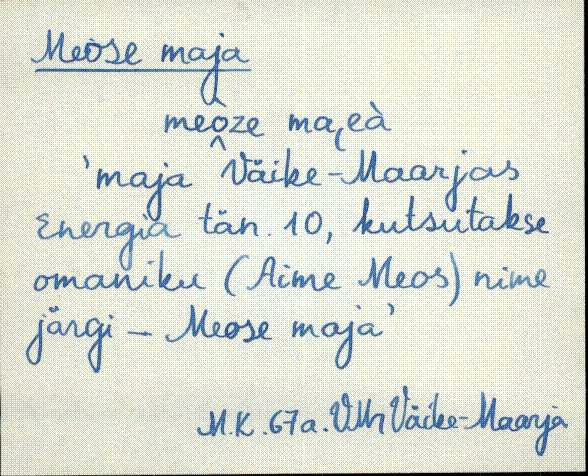 Meose maja
meòze ma(eà
'maja Väike-Maarjas
Energia tän. 10, kutsutakse
omaniku (Aime Meos) nime
järgi – Meose maja'
M.K. 67a. VMr Väike-Maarja